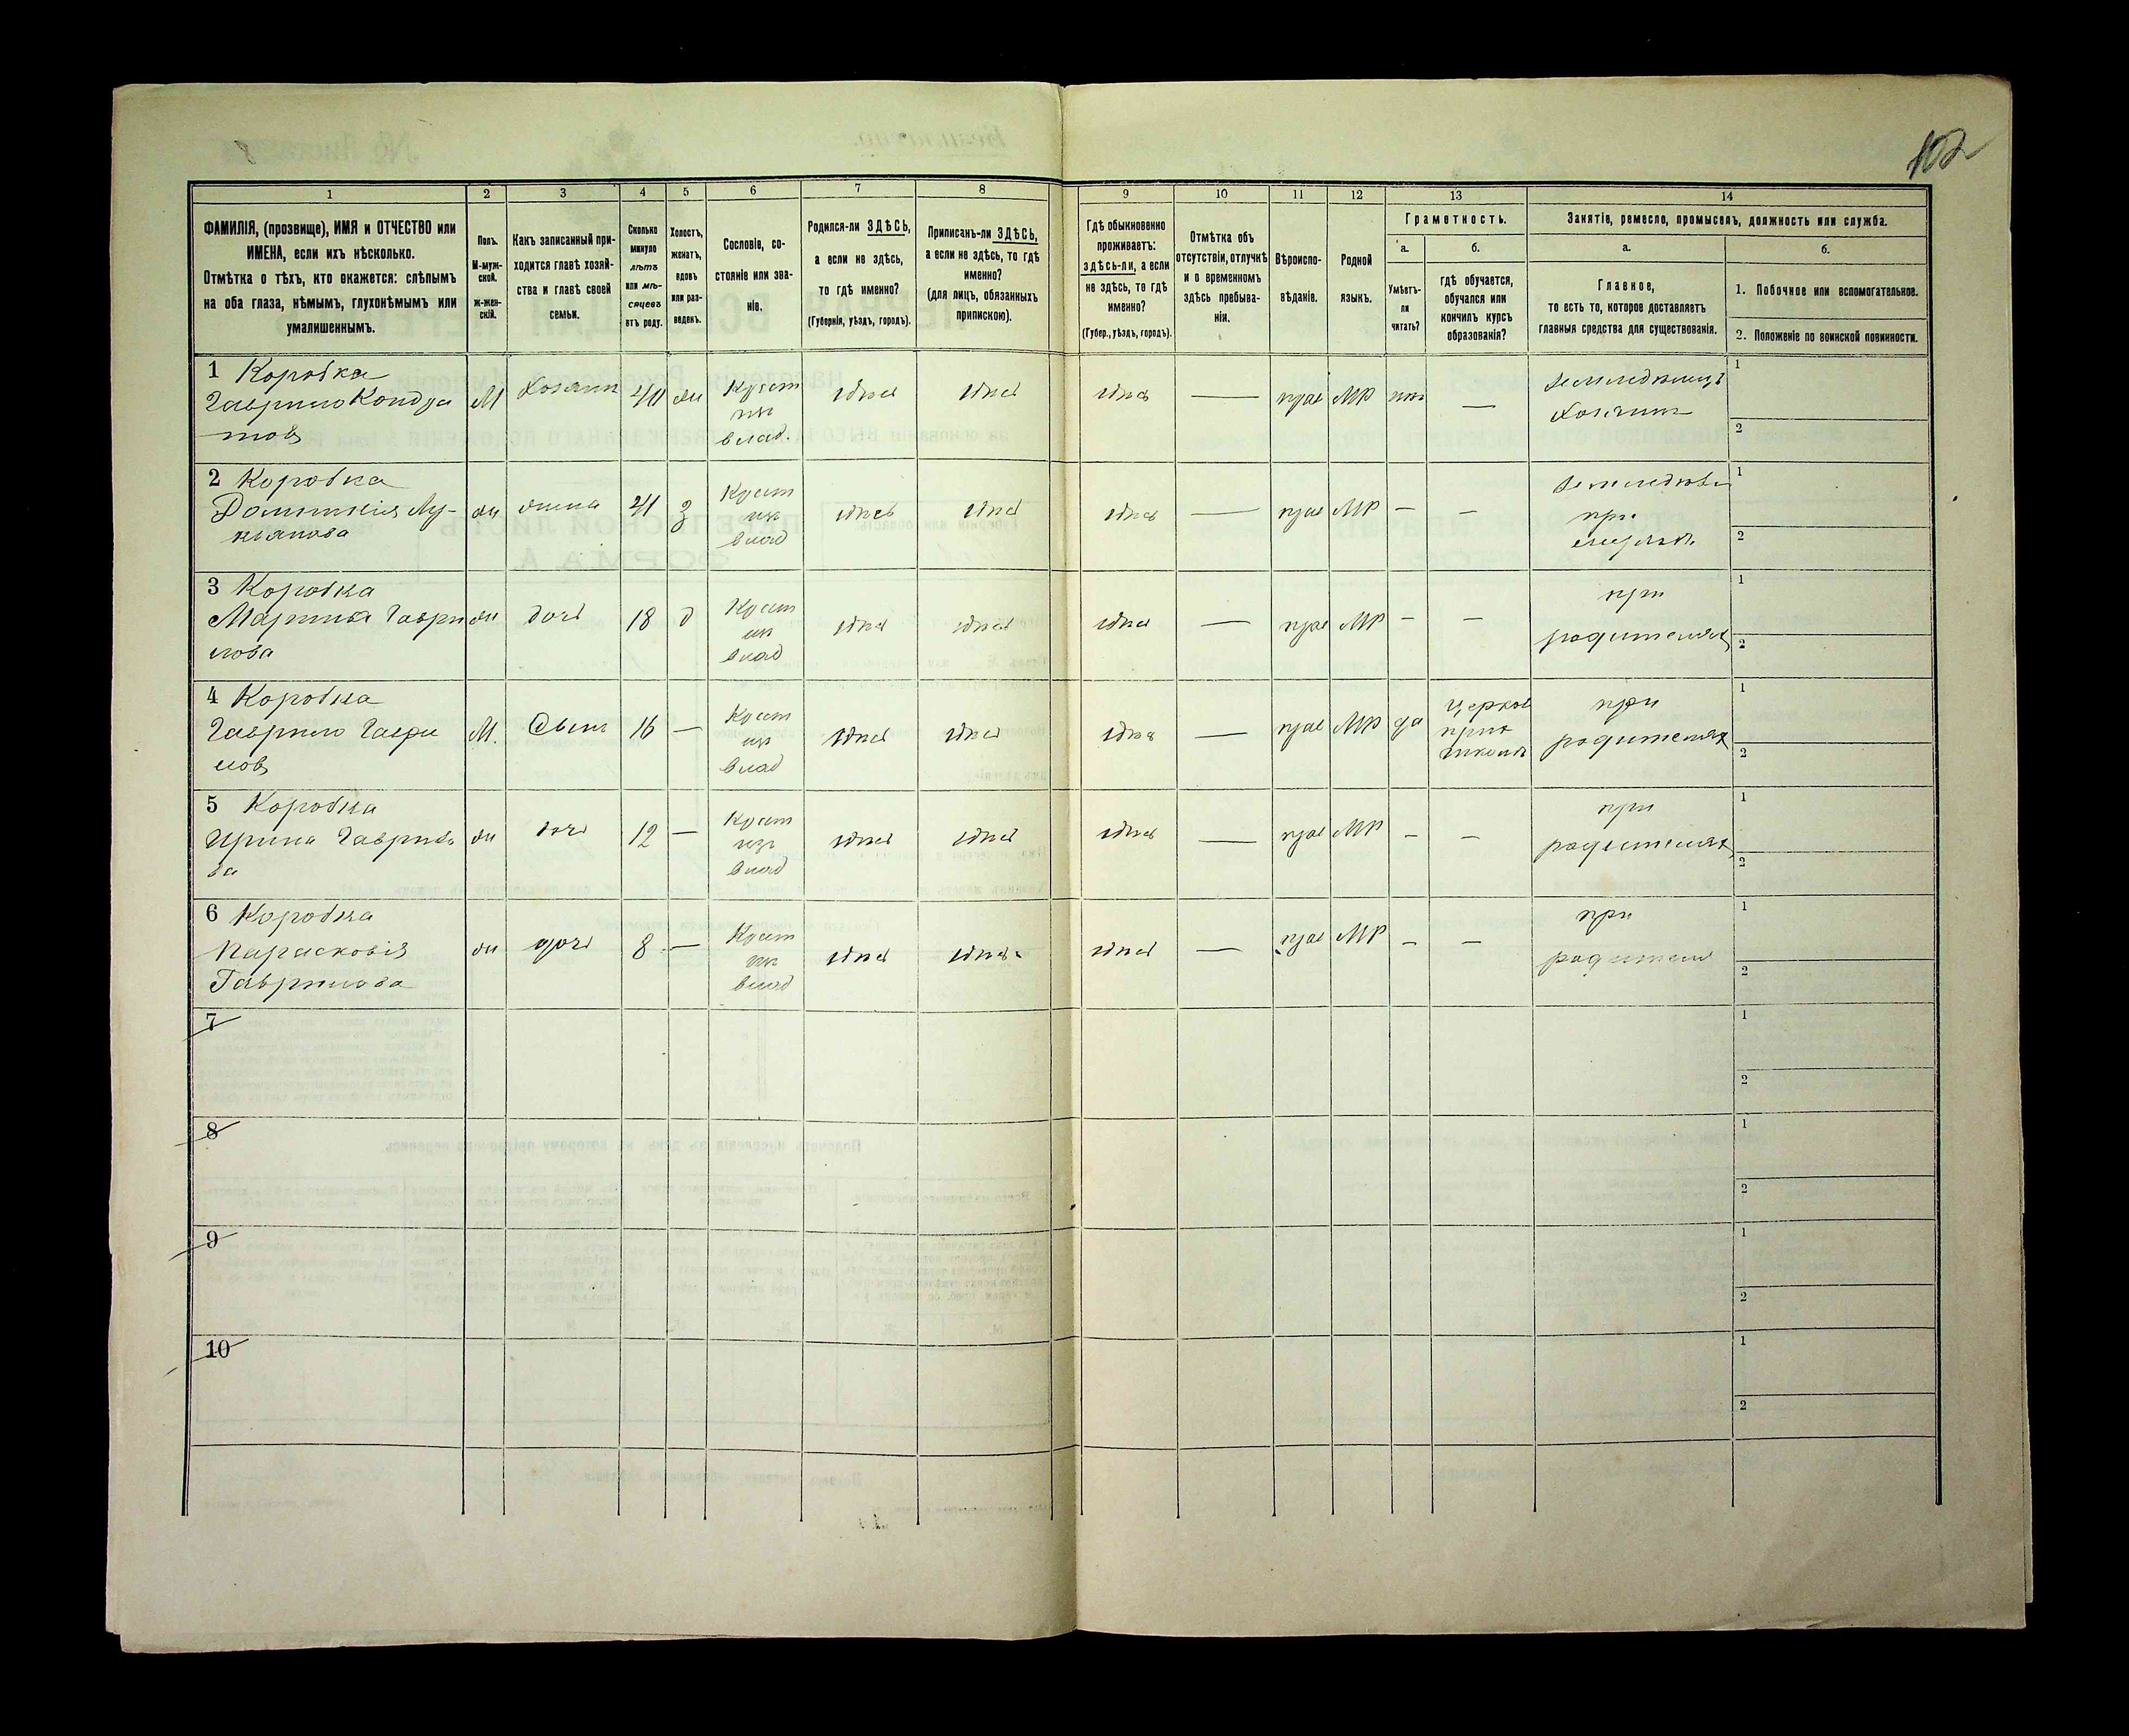 102
1
2
3
4
5
6
7
8
9
10
11
12
13
14
ФАМИЛІЯ, (прозвище), ИМЯ и ОТЧЕСТВО или
ИМЕНА, если ихъ нѣсколько.
Отмѣтка о тѣхъ, кто окажется: слѣпымъ
на оба глаза, нѣмымъ, глухонѣмымъ или
умалишеннымъ.
Полъ.
М-муж-
ской.
ж-жен-
скій.
Какъ записанный при-
ходится главѣ хозяй-
ства и главѣ своей
семьи.
Сколько
минуло
лѣтъ
или мѣ-
сяцевъ
отъ роду.
Холостъ,
женатъ,
вдовъ
или раз-
веденъ.
Сословіе, со-
стояніе или зва-
ніе.
Родился-ли ЗДѢСЬ,
а если не здѣсь,
то гдѣ именно?
(Губернія, уѣздъ, городъ).
Приписанъ-ли ЗДѢСЬ,
а если не здѣсь, то гдѣ
именно?
(для лицъ, обязанныхъ
припискою).
Гдѣ обыкновенно
проживаетъ:
здѣсь-ли, а если
не здѣсь, то гдѣ
именно?
(Губер., уѣздъ, городъ).
Отмѣтка объ
отсутствіи, отлучкѣ
и о временномъ
здѣсь пребыва-
ніи.
Вѣроиспо-
вѣданіе.
Родной
языкъ.
Грамотность.
а.
Умѣетъ-
ли
читать?
б.
гдѣ обучается,
обучался или
кончилъ курсъ
образованія?
Занятіе, ремесло, промыселъ, должность или служба.
а.
Главное,
то есть то, которое доставляетъ
главныя средства для существованія.
б.
1. Побочное или вспомогательное.
2. Положеніе по воинской повинности.
1 Коробка
Гаврило Кондра
товъ
М
Хозяинъ
40
жн
Крест
изъ
влад.
здѣсь
здѣсь
здѣсь
—
прав
МР
нѣт
—
Земледѣлецъ
Хозяинъ
1
2
2 Коробка
Домникія Лу-
кьянова
жн
жена
41
З
Крест
из
влад
здѣсь
здѣсь
здѣсь
—
прав
МР
—
—
при
мужѣ
1
2
3 Коробка
Марина Гаври
лова
жн
дочь
18
д
Крест
из
влад
здѣсь
здѣсь
здѣсь
—
прав
МР
—
—
при
родителях
1
2
4 Коробка
Гаврило Гаври
ловъ
М.
Сынъ
16
—
Крест
из
влад
здѣсь
здѣсь
здѣсь
—
прав
МР
да
церков
прих
школѣ
при
родителях
1
2
5 Коробка
Ирина Гаврило
ва
жн
дочь
12
—
Крест
из
влад
здѣсь
здѣсь
здѣсь
—
прав
МР
—
—
при
родителях
1
2
6 Коробка
Парасковія
Гаврилова
жн
дочь
8
—
Крест
из
влад
здѣсь
здѣсь
здѣсь
—
прав
МР
—
—
при
родител
1
2
7
1
2
8
1
2
9
1
2
10
1
2